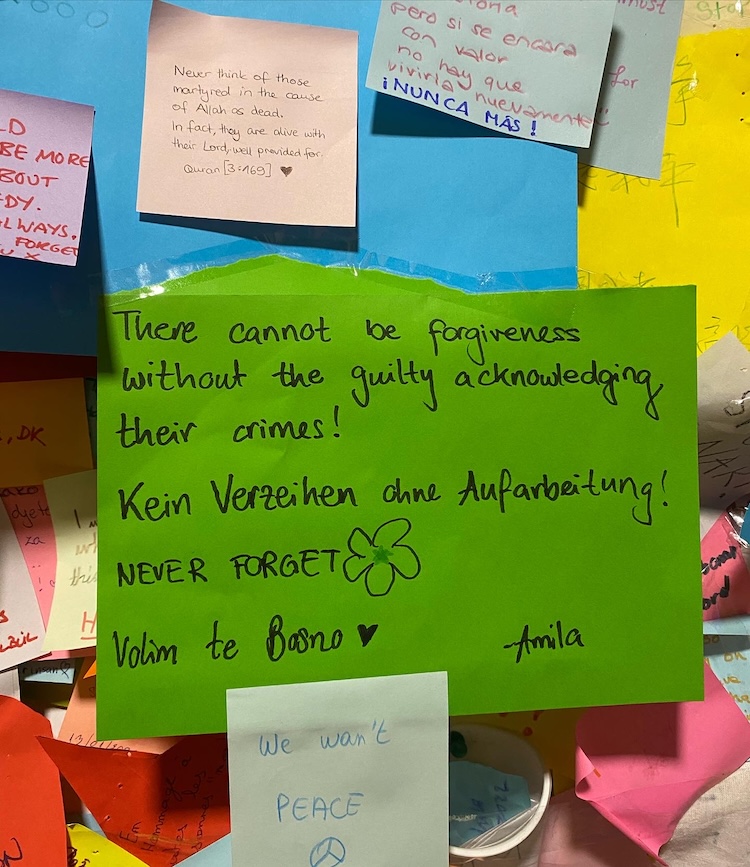 iona
pero si se encara
con valor
no hay que
vivirla nuevamente
¡NUNCA MÁS!
must
for
Never think of those
martyred in the cause
of Allah as dead.
In fact, they are alive with
their Lord, well provided for.
Quran [3:169] ♥
LD
BE MORE
BOUT
DY.
LWAYS.
FORGET
U X
There cannot be forgiveness
without the guilty acknowledging
their crimes!
Kein Verzeihen ohne Aufarbeitung!
NEVER FORGET
Volim te Bosno ♥
Amila
, DK
djete
za
I
We wan't
PEACE